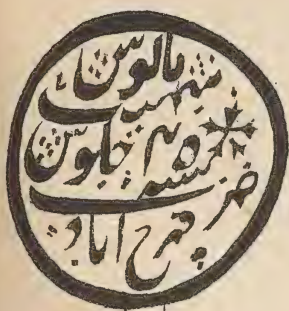 مانوس
میمنت
جلوس
ضرب
فرخ آباد